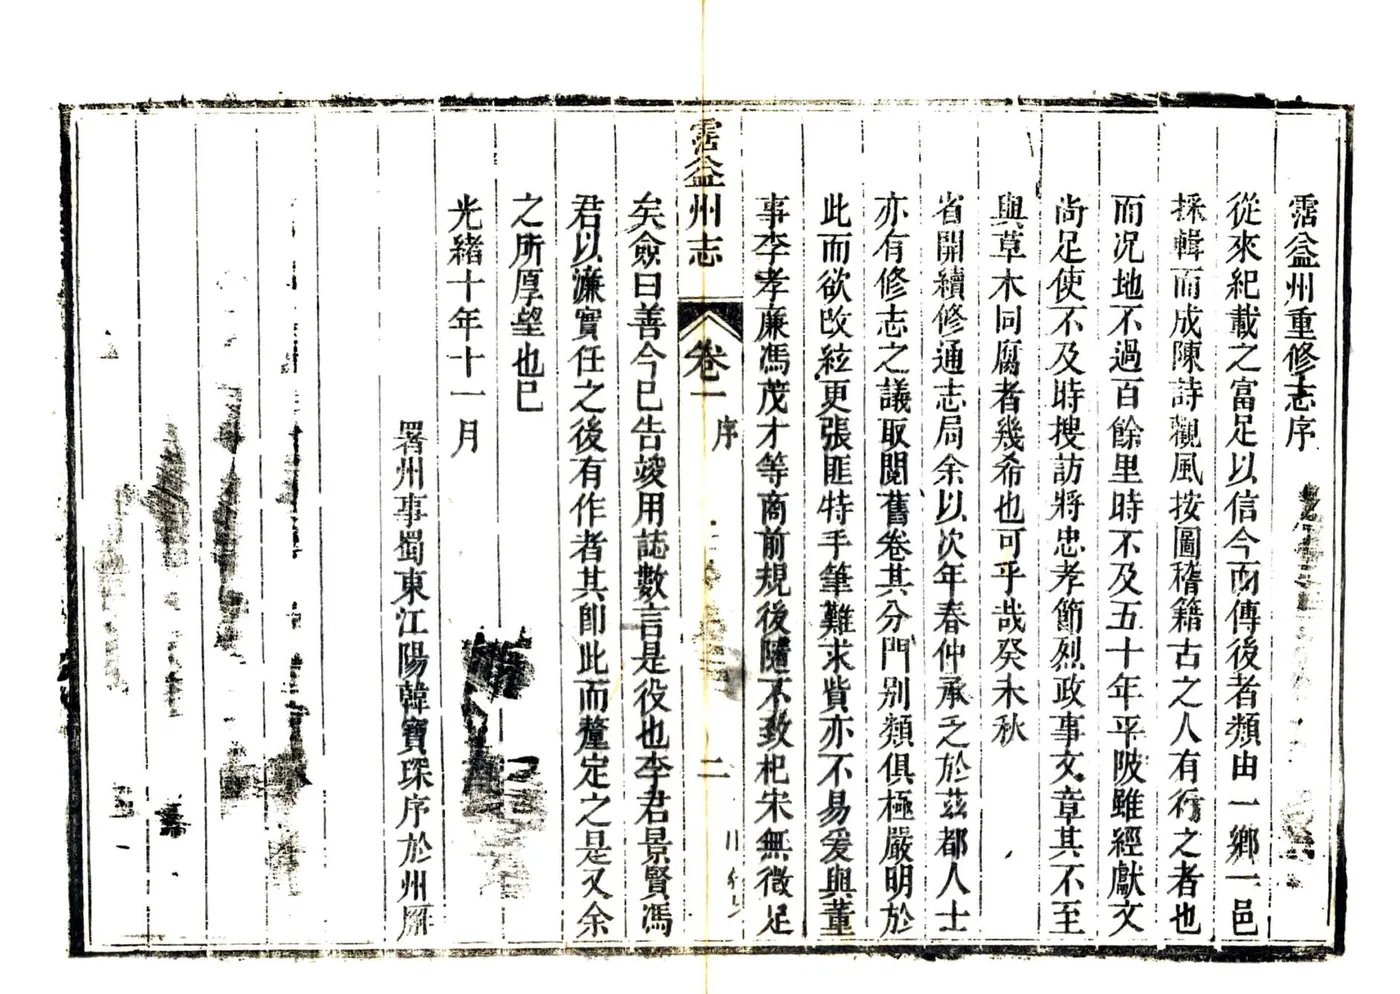 霑益州重修志序
從來紀載之富足以信今而傳後者類由一鄉一邑
採輯而成陳詩觀風按圖稽籍古之人有行之者也
而况地不過百餘里時不及五十年平陂雖經獻文
尚足使不及時搜訪將忠孝節烈政事文章其不至
與草木同腐者幾希也可乎哉癸未秋
省開續修通志局余以次年春仲承乏於茲都人士
亦有修志之議取閱舊卷其分門別類俱極嚴明於
此而欲改絃更張匪特手筆難求貲亦不易爰與董
事李孝廉馮茂才等商前規後隨不致杞宋無徵足
霑益州志
卷一
序
二
矣僉曰善今已告竣用誌數言是役也李君景賢馮
君以濂實任之後有作者其即此而釐定之是又余
之所厚望也已
光緒十年十一月
署州事蜀東江陽韓寶琛序於州廨